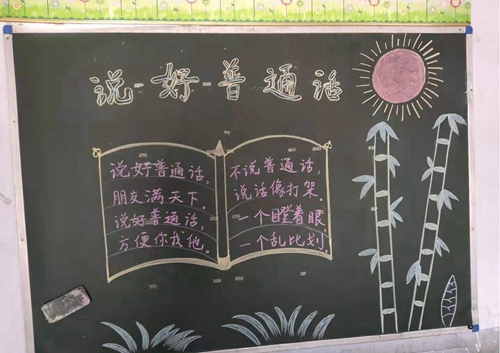 说好普通话
说好普通话,
朋友满天下.
说好普通话,
方便你我他.
不说普通话,
说话像打架.
一个瞪着眼,
一个乱比划.